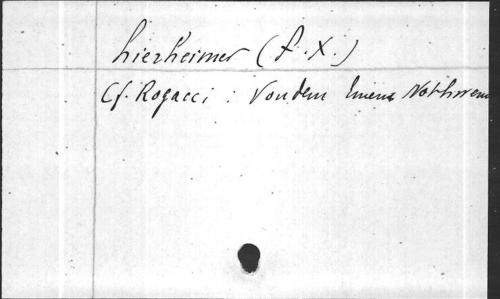 hierheimer (F. X.)
Cf. Rogacci : Von dem Einen Nothwen